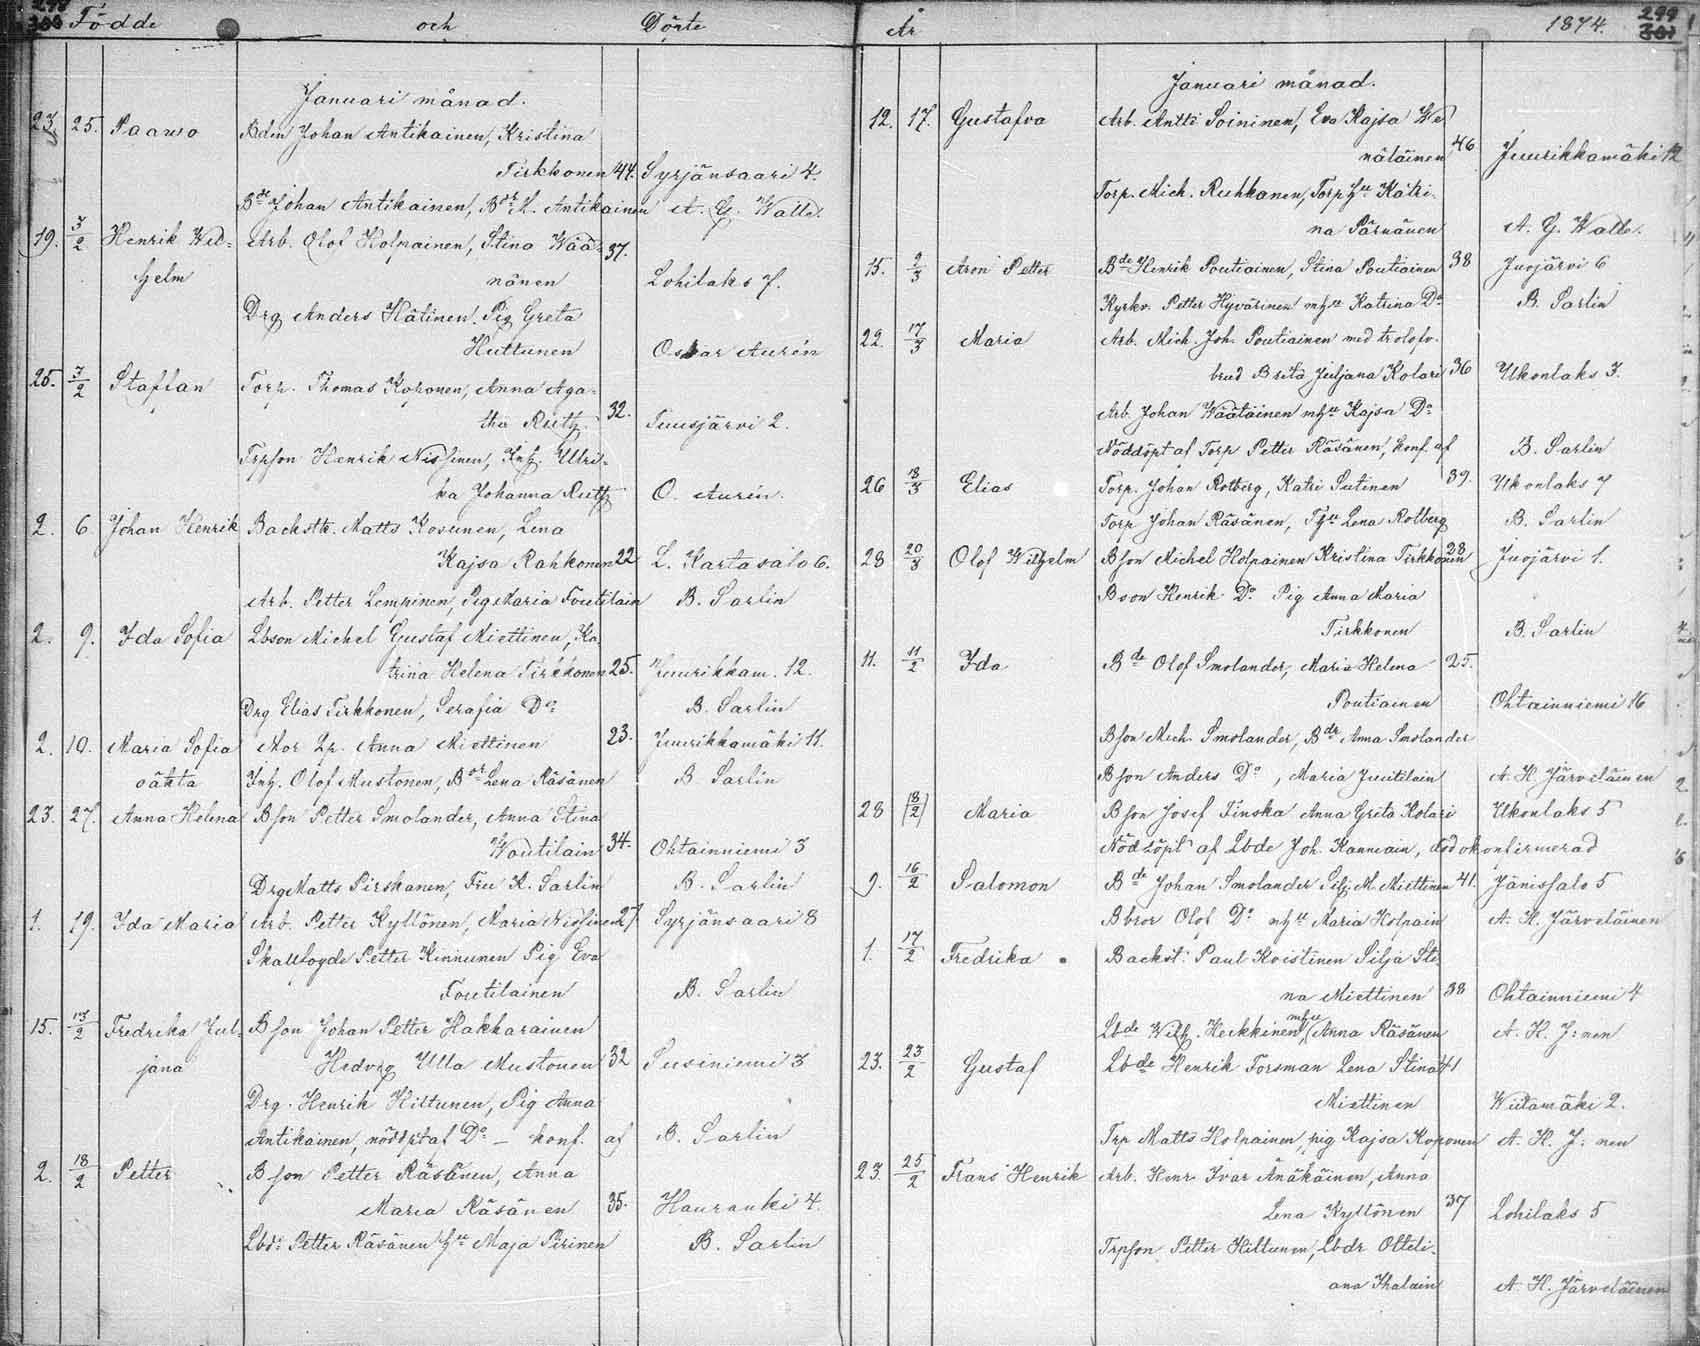 299
Födde och Döpte
Januari månad.
23. 25. Paavo Bdm Johan Antikainen, Kristina
Tirkkonen 44. Syrjänsaari 4.
Bde Johan Antikainen, B K. Antikainen A. G. Walle.
19. 3/2 Henrik Wil- Arb. Olof Holpainen, Stina Wää- 37.
helm nänen Lohilaks 7.
Drg Anders Hätinen, Pig Greta
Huttunen Oskar Aurén
25. 3/2 Staffan Torp. Thomas Koponen, Anna Aga-
tha Ruth 32. Tuusjärvi 2.
Trpson Henrik Nissinen, Inh. Ulri-
ka Johanna Ruth O. Aurén.
2. 6. Johan Henrik Backstk. Matts Kosunen, Lena
Kajsa Rahkonen 22 L. Kartasalo 6.
Arb. Petter Lempinen, Pig Maria Foutilain B. Sarlin
2. 9. Ida Sofia Lbson Michel Gustaf Miettinen, Ka-
trina Helena Tirkkonen 25. Juurikkam. 12.
Drg Elias Tirkkonen, Serafia Do B. Sarlin
2. 10. Maria Sofia Mor Lp. Anna Miettinen 23. Juurikkamäki 11.
oäkta Inh. Olof Mustonen, B Lena Räsänen B. Sarlin
23. 27. Anna Helena Bson Petter Smolander, Anna Stina
Woutilain 34. Ohtainniemi 3
Drg Matts Pirskanen, Fru K. Sarlin B. Sarlin
1. 19. Ida Maria Arb. Petter Kyllönen, Maria Nissinen 27 Syrjänsaari 8
Skallfogde Petter Kinnunen Pig Eva
Foutilainen B. Sarlin
15. 13/2 Fredrika Jul- Bson Johan Petter Hakkarainen
jana Hedvig Ulla Mustonen 32 Susiniemi 3
Drg. Henrik Hiltunen, Pig Anna
Antikainen, nöddpt af Do – konf. af B. Sarlin
2. 18/2 Petter Bson Petter Räsänen, Anna
Maria Räsänen 35. Hauranki 4.
Lbde Petter Räsänen hu Maja Pirinen B. Sarlin
År 1874. 299
301
Januari månad.
12. 17. Gustafva Arb. Antti Soininen, Eva Kajsa We-
näläinen 46 Juurikkamäki 12
Torp. Mich. Ruhkanen, Torp hu Katri-
na Pärnänen A. G. Walle.
15. 2/3 Aron Petter Bde Henrik Poutiainen, Stina Poutiainen 38 Juojärvi 6
Kyrkv. Petter Hyvärinen mhu Katrina Do B. Sarlin
22. 17/3 Maria Arb. Mich. Joh. Poutiainen med trolofv.
brud Brita Juljana Kolari 36 Ukonlaks 3.
Arb. Johan Wäätäinen mhu Kajsa Do
Nöddöpt af Torp Petter Räsänen, konf. af B. Sarlin
26 18/3 Elias Torp. Johan Rotberg, Katri Sutinen 39. Ukonlaks 7
Torp Johan Räsänen, Thu Lena Rotberg B. Sarlin
28 20/3 Olof Wilhelm Bson Michel Holpainen Kristina Tirkkonen 28 Juojärvi 1.
Bson Henrik Do Pig Anna Maria
Tirkkonen B. Sarlin
11. 11/2 Ida Bde Olof Smolander, Maria Helena 25.
Poutiainen Ohtainniemi 16
Bson Mich. Smolander, Bdr Anna Smolander
Bson Anders Do, Maria Juutilain A. H. Järveläinen
28 (8/2) Maria Bson Josef Finska Anna Greta Kolari Ukonlaks 5
Nöddöpt af Lbde Joh. Kannain, död okonfirmerad
9. 16/2 Salomon Bde Johan Smolander Silj. M. Miettinen 41. Jänissalo 5
Bbror Olof Do mhu Maria Holpain A. H. Järveläinen
1. 17/2 Fredrika Backst: Paul Koistinen Silja Sti-
na Miettinen 38 Ohtainniemi 4
Lbde Wilh. Heikkinen mhu Anna Räsänen A. H. J:nen
23. 23/2 Gustaf Lbde Henrik Forsman Lena Stina 41
Miettinen Wiitamäki 2.
Trp Matts Holpainen, pig Kajsa Koponen A. H. J:nen
23. 25/2 Frans Henrik Arb. Henr Ivar Änäkäinen, Anna
Lena Kyllönen 37 Lohilaks 5
Trpson Petter Hiltunen, Lbdr Otteli-
ana Ihalain A. H. Järveläinen